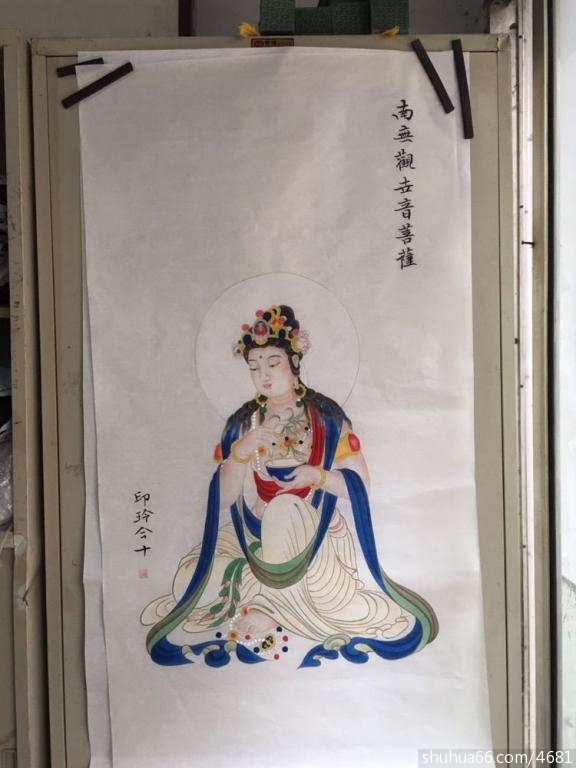 南無觀世音菩薩
印玲合十
shuhua66.com/4681